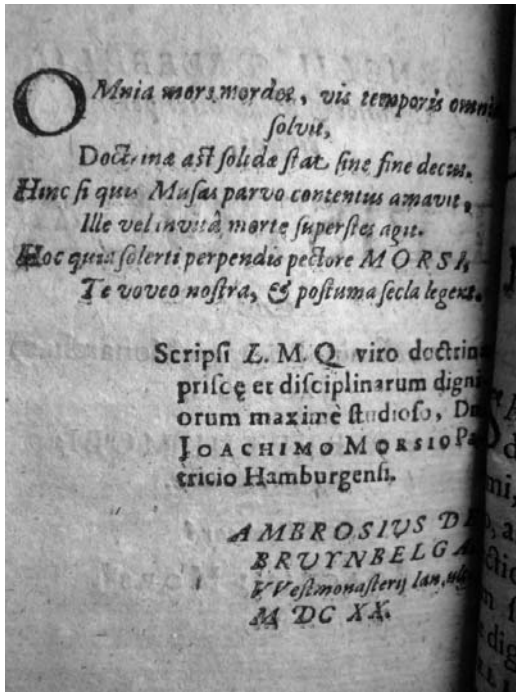 OMnia mors mordet, vis temporis omnia
solvit,
Doctrinæ ast solidæ stat sine fine decus.
Hinc si quis Musas parvo contentus amavit,
Ille vel invitâ morte superstes agit.
Hoc quia solerti perpendis pectore MORSI,
Te voveo nostra, & postuma secla legent.
Scripsi L. M. Q. viro doctrinæ
priscę et disciplinarum digni-
orum maximè studioso, Dn.
JOACHIMO MORSIO Pa-
tricio Hamburgensi.
AMBROSIVS DE
BRUYN BELGA
VVestmonasterij Ian. ult.
M DC XX.